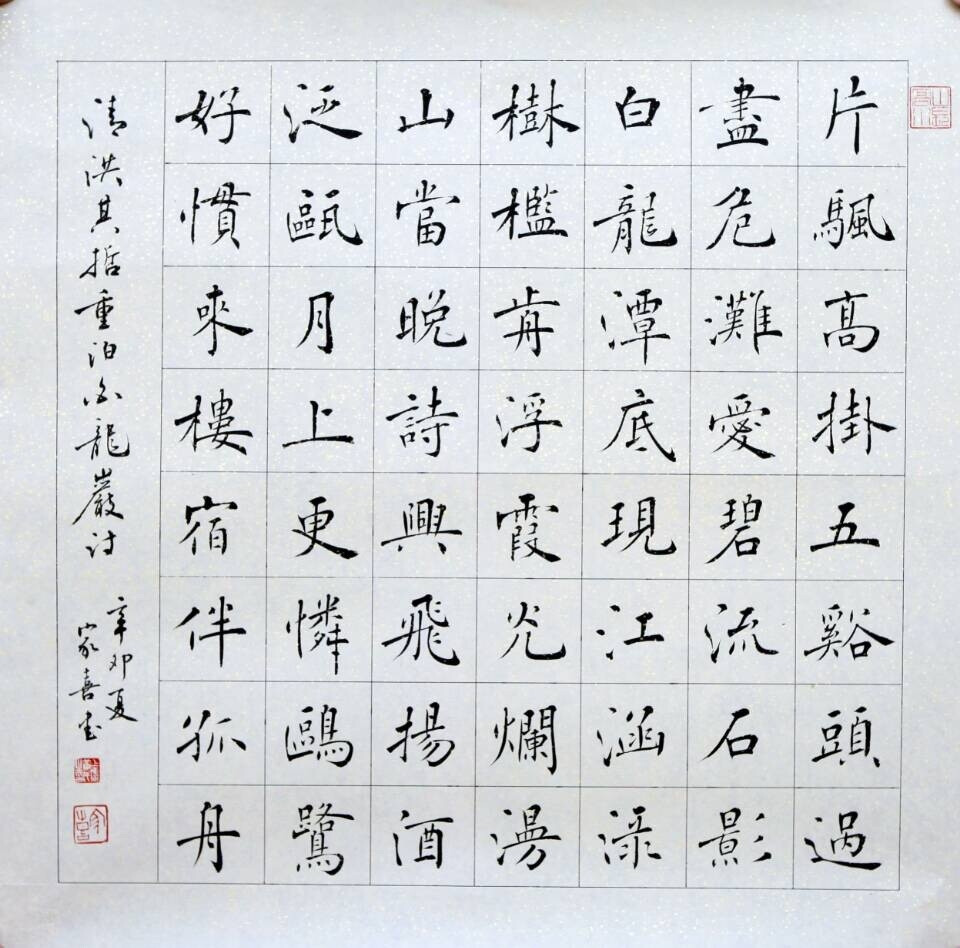 片颿髙掛五谿頭過
盡危灘愛碧流石影
白龍潭底現江涵淥
樹檻歬浮霞光爛漫
山當晚詩興飛揚酒
泛甌月上更憐鷗鷺
好慣來樓宿伴孤舟
清洪其哲重泊白龍巖詩
辛卯夏
家喜書